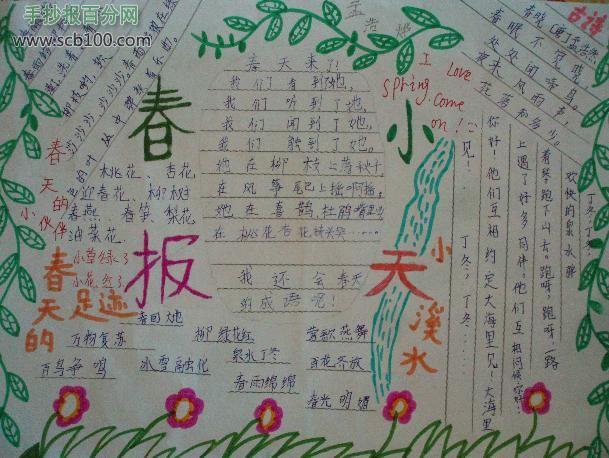 手抄报百分网
www.scb100.com
孟浩然
古诗
春晓(唐)孟浩然
春眠不觉晓
处处闻啼鸟。
夜来风雨声，
花落知多少。
I Love
Spring. Come
on!
春天来了!
我们看到了她，
我们听到了她，
我们闻到了她，
我们触到了她。
她在柳枝上荡秋千
在风筝尾巴上摇啊摇，
她在喜鹊、杜鹃嘴里叫
在桃花杏花枝头笑……
我还会春天
的成语呢!
春
小
报
天
春天的小伙伴
桃花、杏花
迎春花、柳树
春燕、春笋、梨花
油菜花
小草绿了
小花红了
春天的足迹
春回大地
柳绿花红
莺歌燕舞
万物复苏
泉水丁冬
百花齐放
百鸟争鸣
冰雪融化
春雨绵绵
春光明媚
小溪水
欢快的泉水
看琴跑下山去。跑呀，跑呀，一路
上遇了好多同伴，他们互相问候你好!
你好!他们互相约定大海里见，大海里
见!
丁冬，丁冬……